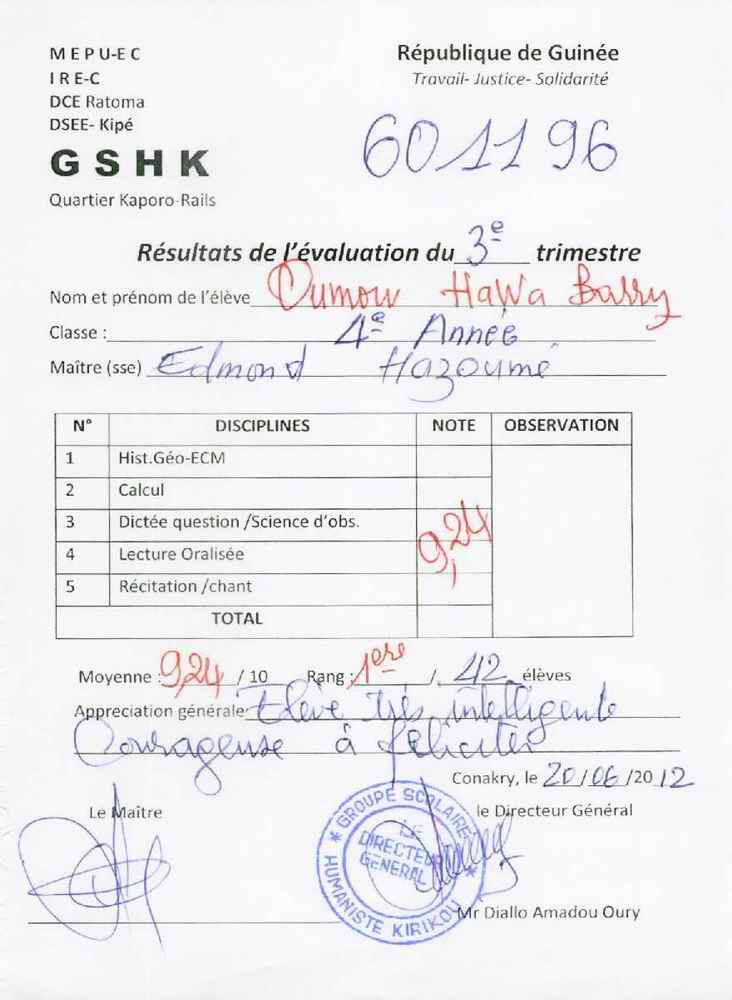 M E P U-E C
I R E-C
DCE Ratoma
DSEE- Kipé
G S H K
Quartier Kaporo-Rails
République de Guinée
Travail- Justice- Solidarité
601196
Résultats de l'évaluation du 3e trimestre
Nom et prénom de l'élève Oumou Hawa Barry
Classe : 4e Année
Maître (sse) Edmond Hazoumé
N° DISCIPLINES NOTE OBSERVATION
1 Hist.Géo-ECM
2 Calcul
3 Dictée question /Science d'obs.
4 Lecture Oralisée
5 Récitation /chant
9,24
TOTAL
Moyenne : 9,24 / 10 Rang : 1ere /. 42 élèves
Appreciation générale Elève très intelligente
Courageuse à féliciter
Conakry, le 20/06/2012
Le Maître
le Directeur Général
GROUPE SCOLAIRE
HUMANISTE KIRIKOU
LE
DIRECTEUR
GENERAL
Mr Diallo Amadou Oury